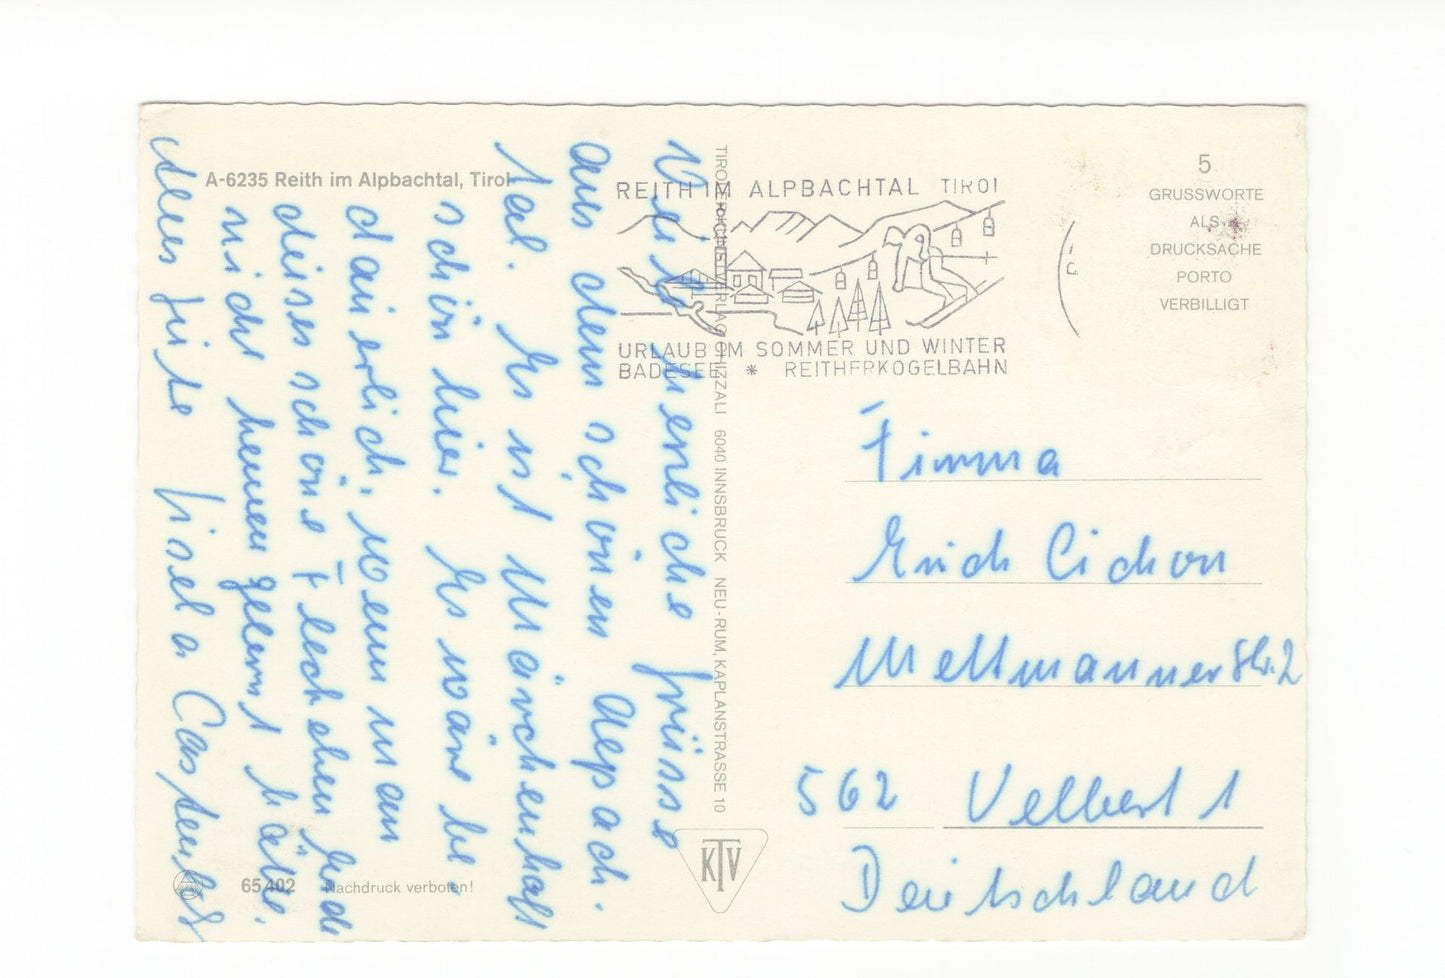 A-6235 Reith im Alpbachtal, Tirol
Viele herzliche Grüsse
aus dem schönen Alpach.
Tal. Es ist Märchenhaft
schön hier. Es wäre be
dauerlich, wenn man
dieses schöne Fleckchen Erde
nicht kennengelernt hätte.
Alles Gute Gisela
65 402 Nachdruck verboten!
TIROLER KUNSTVERLAG CHIZZALI 6040 INNSBRUCK NEU-RUM, KAPLANSTRASSE 10
KTV
REITH IM ALPBACHTAL TIROL
URLAUB IM SOMMER UND WINTER
BADESEE * REITHERKOGELBAHN
5
GRUSSWORTE
ALS
DRUCKSACHE
PORTO
VERBILLIGT
Firma
Erich Cichon
Mettmanner Str. 2
562 Velbert 1
Deutschland